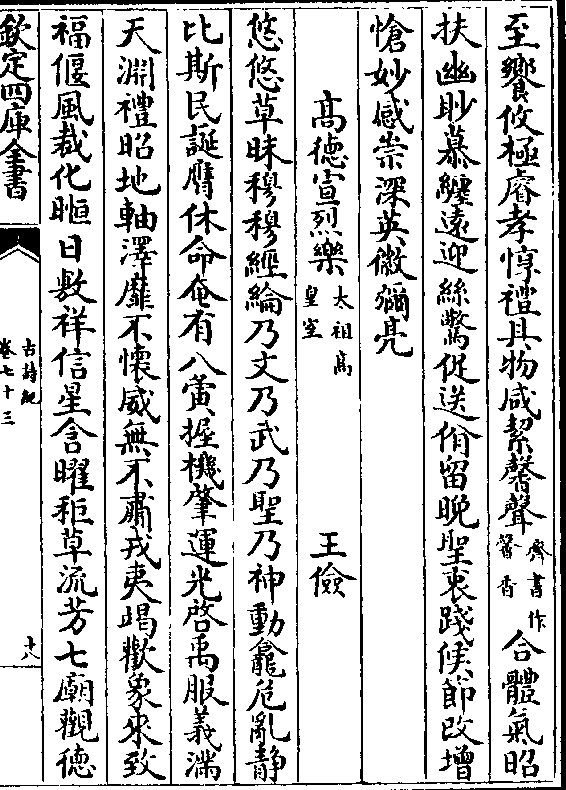 至饗攸極睿孝惇禮具物咸絜馨聲齊書作馨香合體氣昭
扶幽眇慕纏遠迎絲驚促送佾留晩聖衷踐候節改增
愴妙感崇深英徽彌亮
髙德宣烈樂太祖髙皇室 王儉
悠悠草昧穆穆經綸乃文乃武乃聖乃神動龕危亂静
比斯民誕膺休命奄有八夤握機肇運光啓禹服義滿
天淵禮昭地軸澤靡不懷威無不肅戎夷竭歡象來致
福偃風裁化暅日敷祥信星含曜秬草流芳七廟觀德
欽定四庫全書
古詩紀
卷七十三
十八